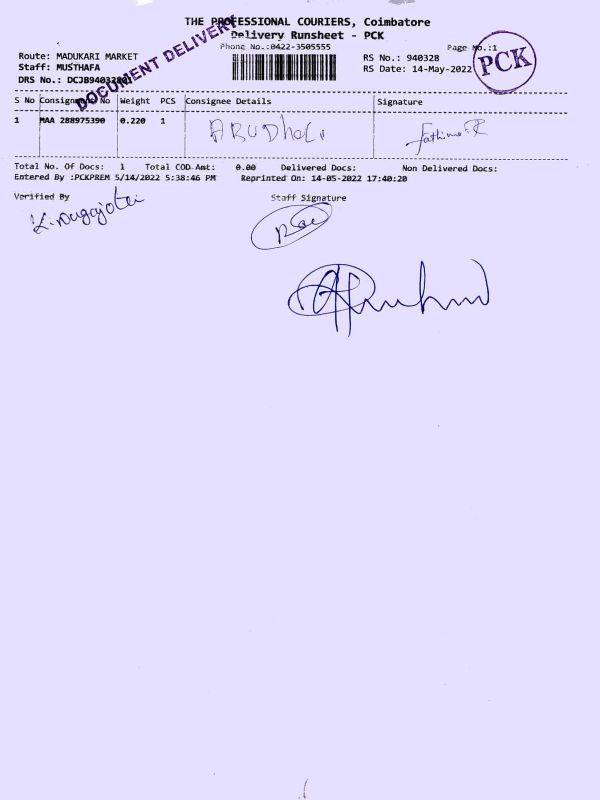 THE PROFESSIONAL COURIERS, Coimbatore
Delivery Runsheet - PCK
Phone No.:0422-3505555
Page No.:1
Route: MADUKARI MARKET
RS No.: 940328
Staff: MUSTHAFA
RS Date: 14-May-2022
DRS No.: DCJB94032801
DOCUMENT DELIVERY
PCK
S No Consignment No Weight PCS Consignee Details Signature
1 MAA 288975390 0.220 1 ABUDhabi Fathima R
Total No. Of Docs: 1 Total COD Amt: 0.00 Delivered Docs: Non Delivered Docs:
Entered By :PCKPREM 5/14/2022 5:38:46 PM Reprinted On: 14-05-2022 17:40:20
Verified By Staff Signature